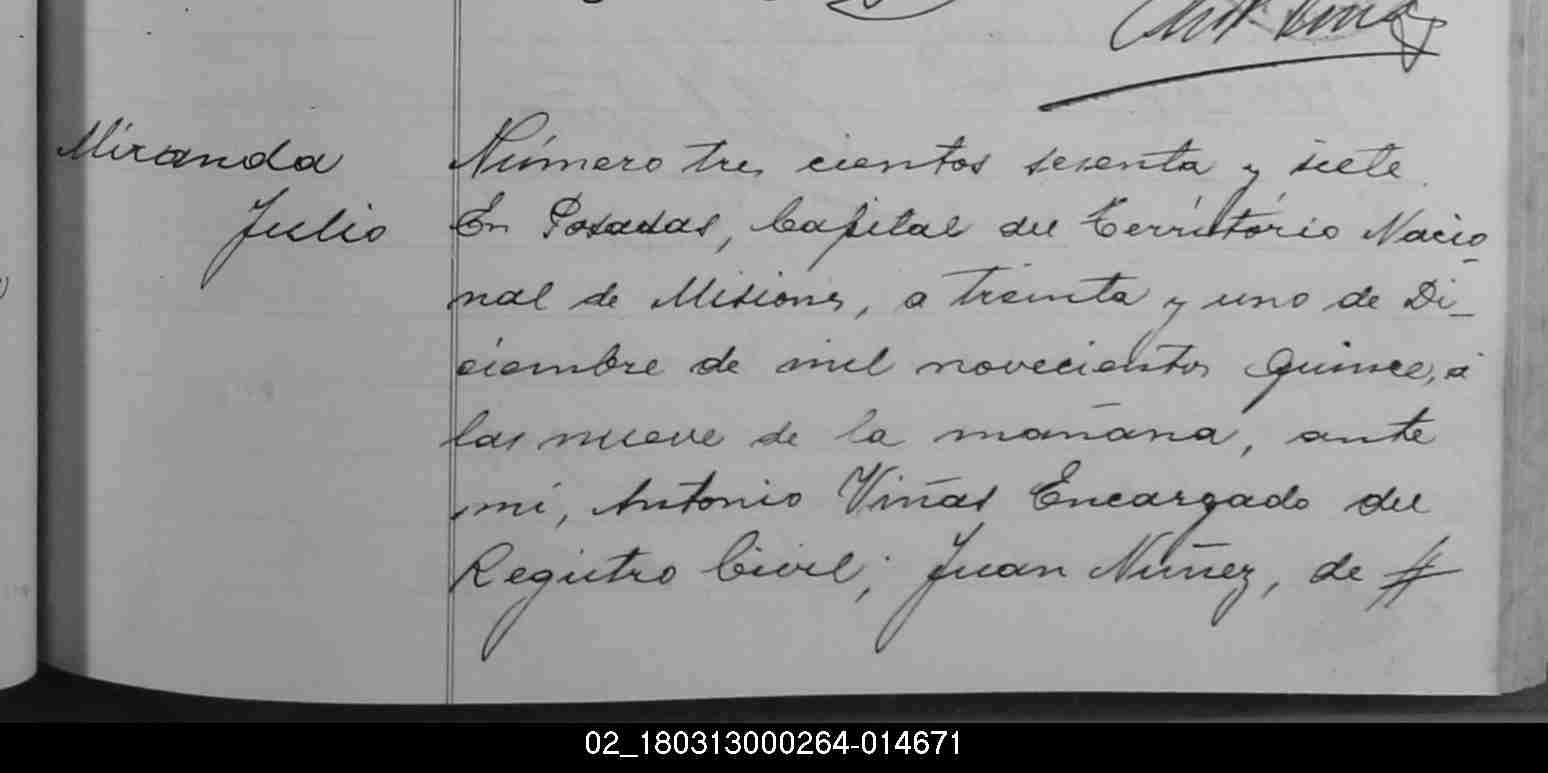 Miranda
Julio
Número tres cientos sesenta y siete
En Posadas, Capital del Territorio Nacio
nal de Misiones, a treinta y uno de Di_
ciembre de mil novecientos quince, á
las nueve de la mañana, ante
mi, Antonio Viñas Encargado del
Registro Civil; Juan Nuñez, de #
02_180313000264-014671